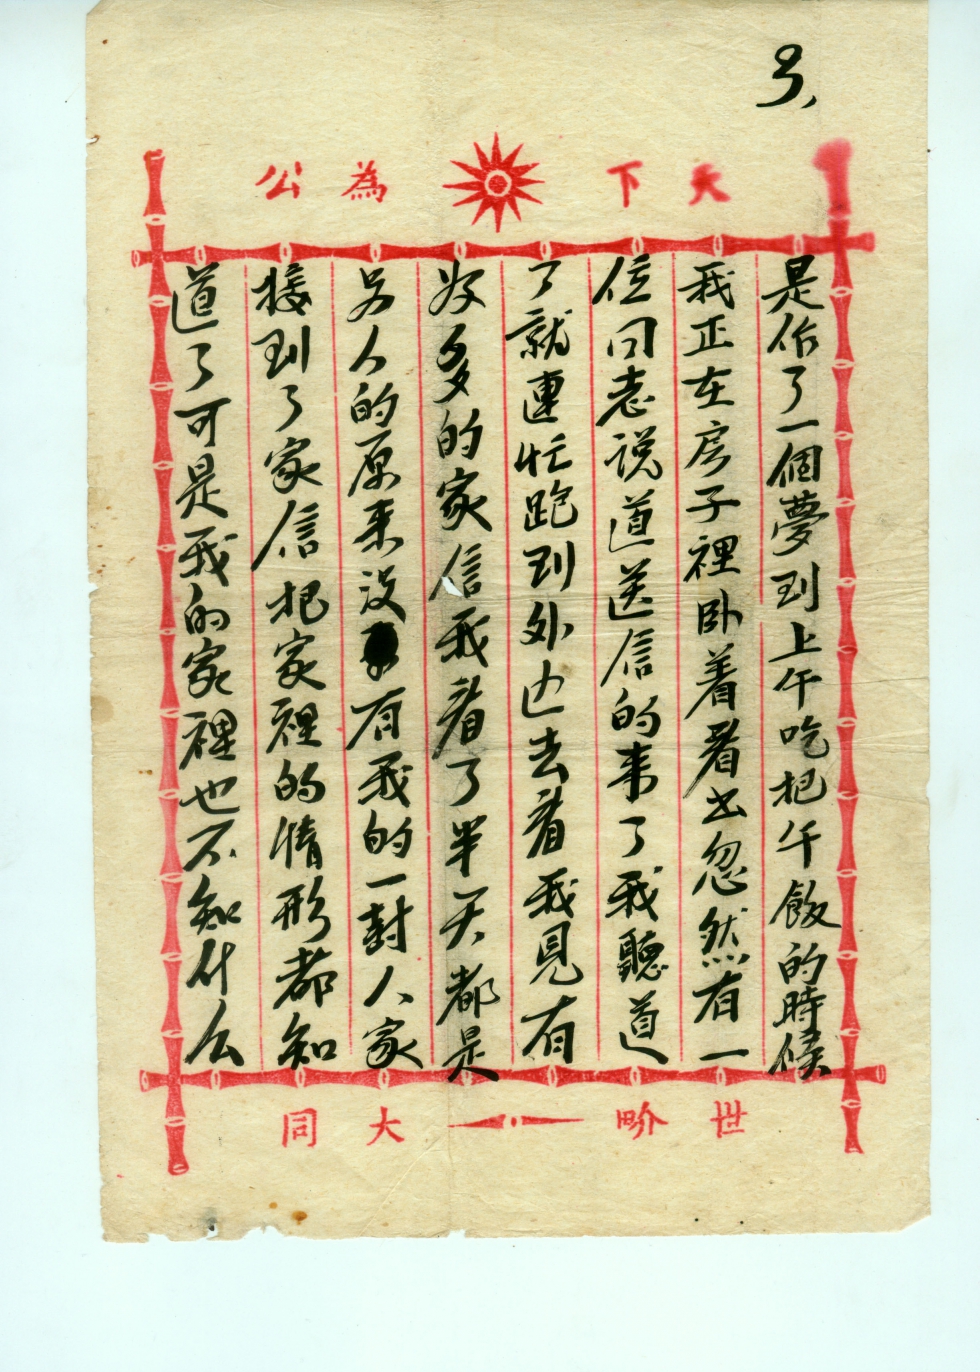 3,
天下為公
是作了一個夢到上午吃把午飯的時候
我正在房子裡卧着看书忽然有一
位同志说道送信的来了我聽道
了就連忙跑到外边去看我見有
好多的家信我看了半天都是
另人的原来没有我的一封人家
接到了家信把家裡的情形都知
道了可是我的家裡也不知什么
世畍大同